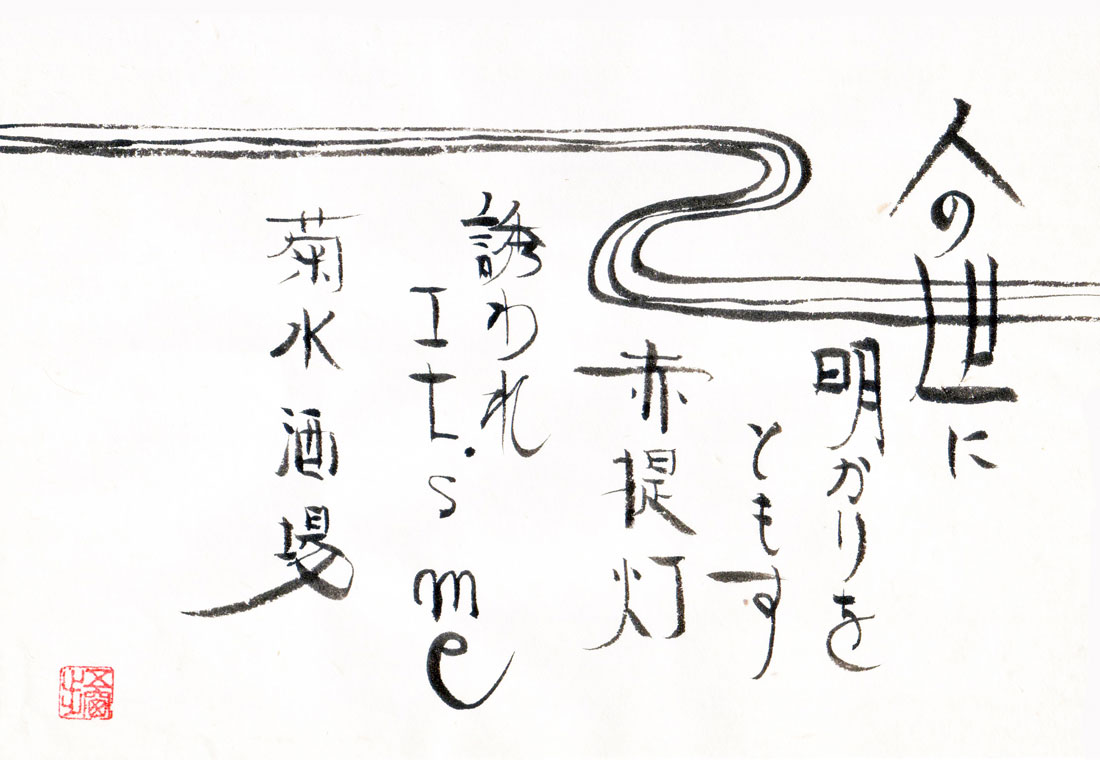 人の世に
明かりを
ともす
赤提灯
誘われ
It's me
菊水酒場